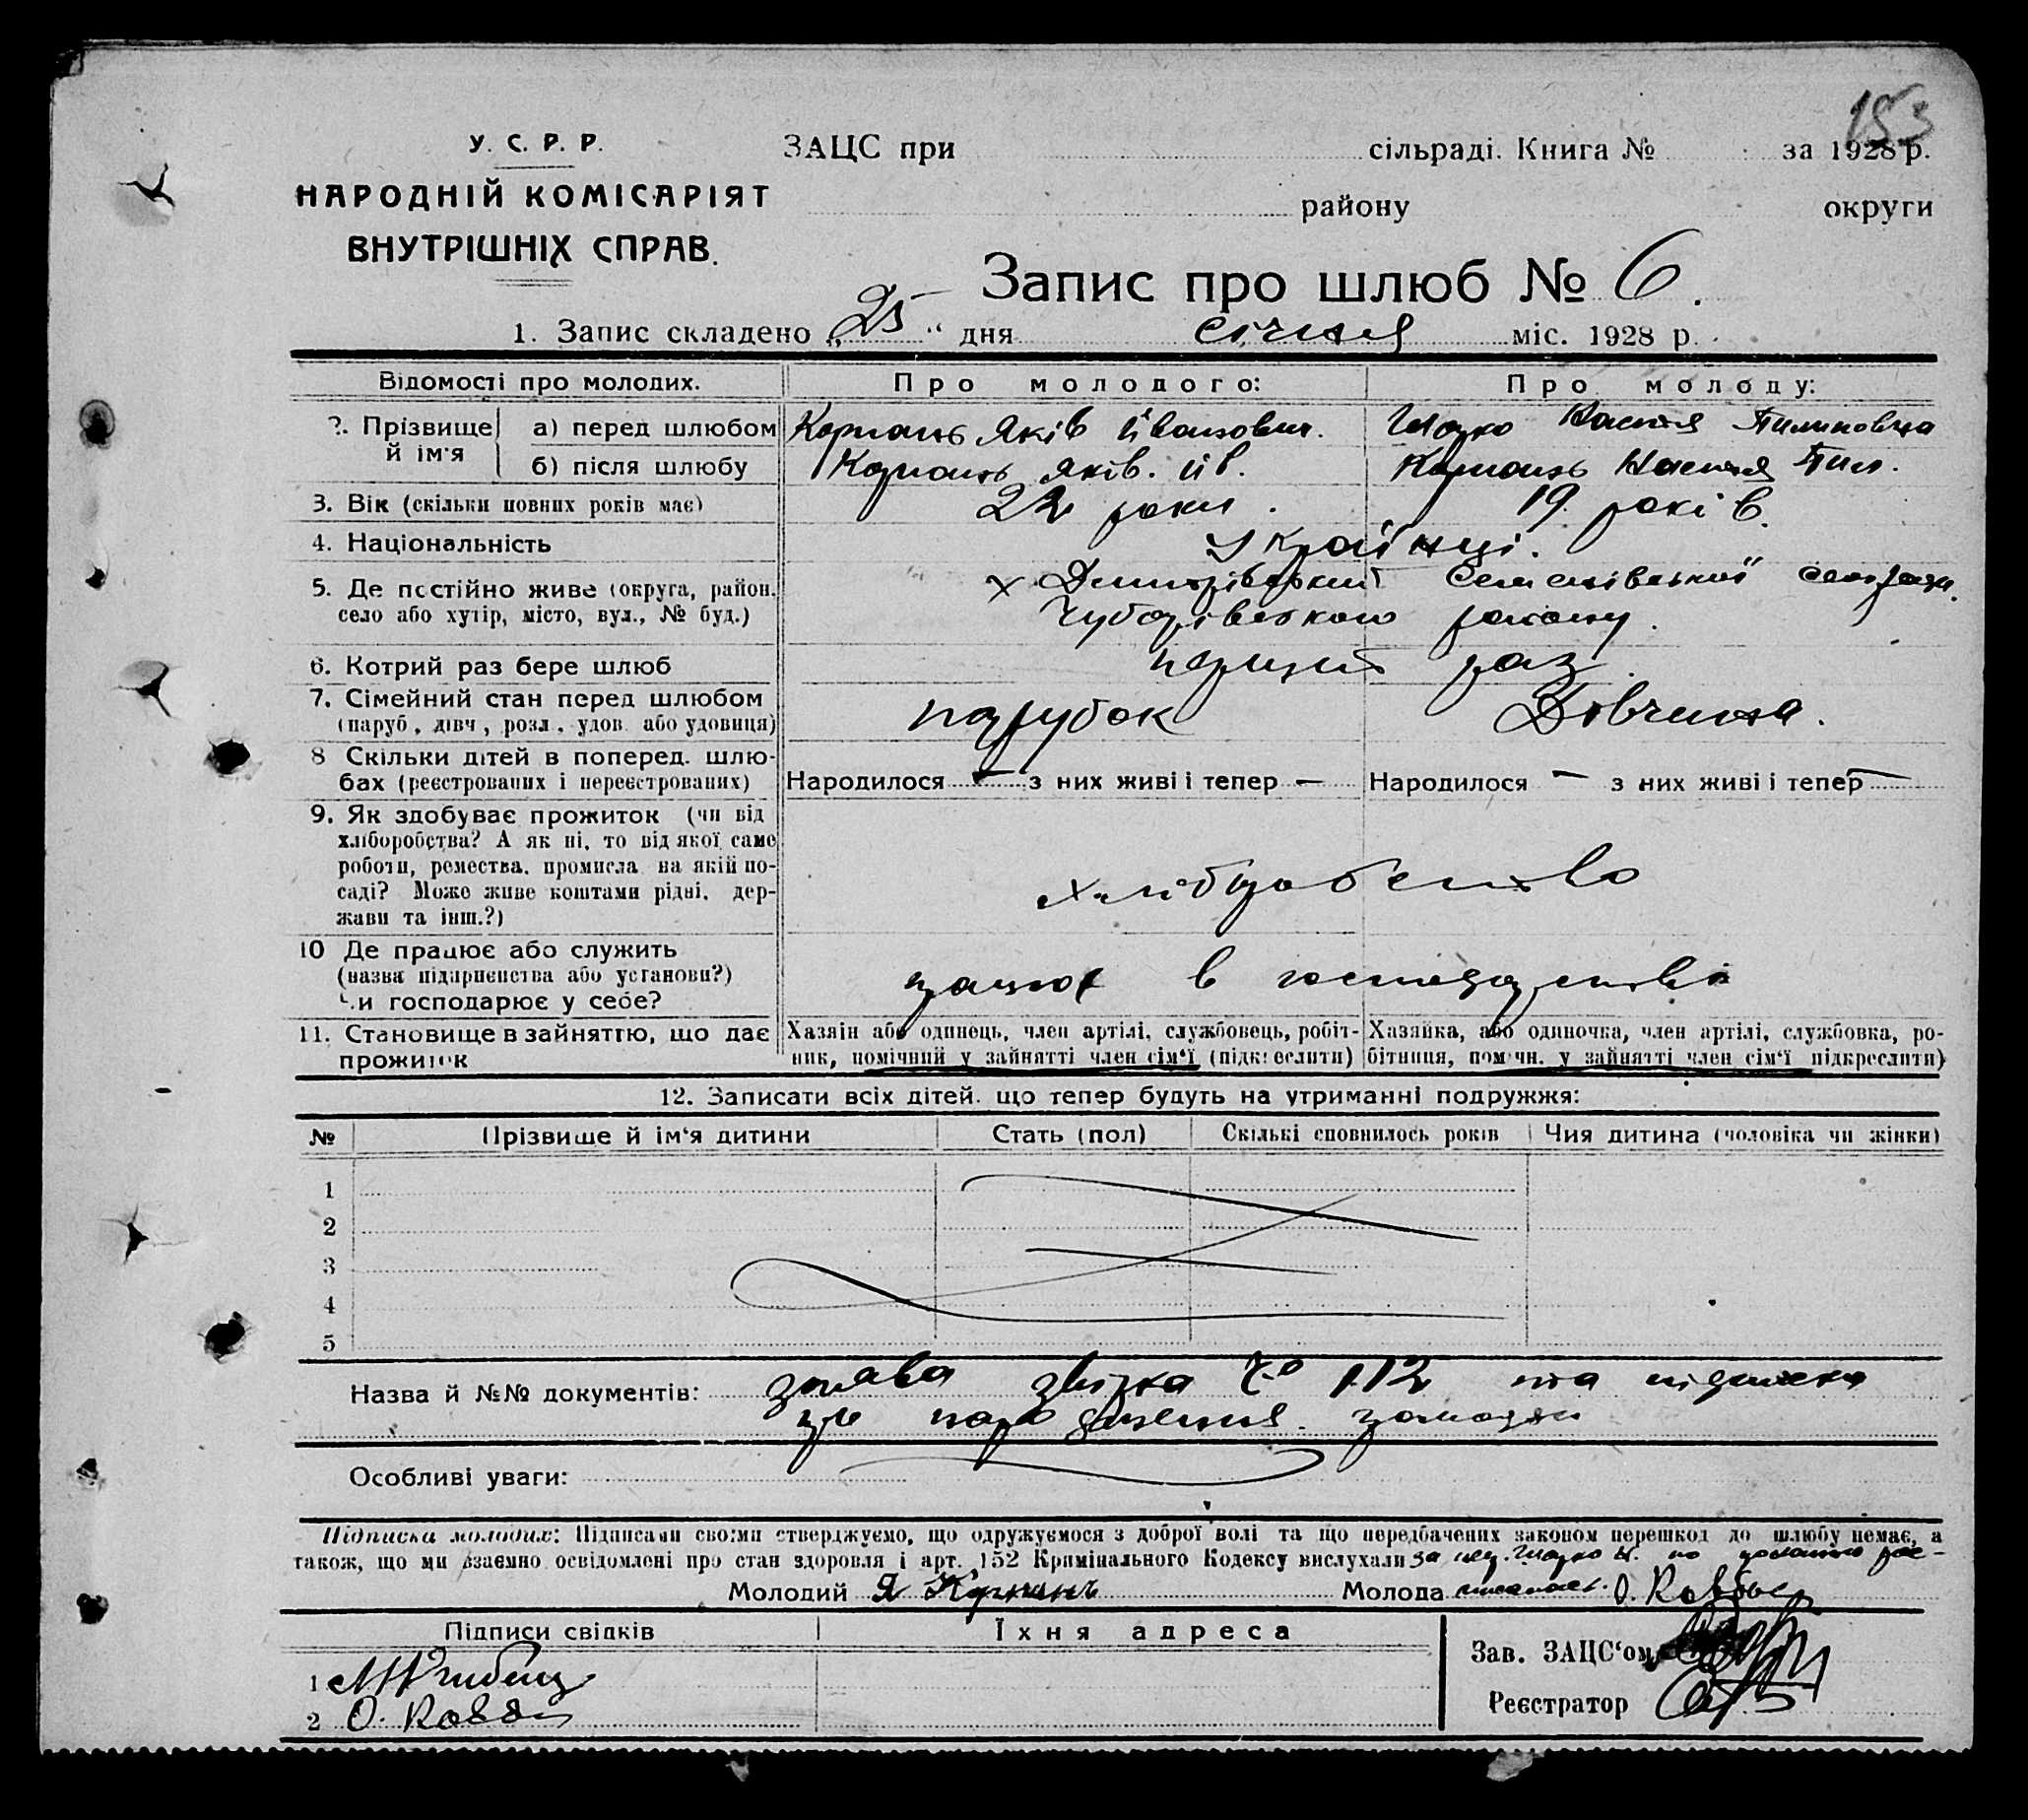 153
У. С. Р. Р.
НАРОДНІЙ КОМІСАРІЯТ
ВНУТРІШНІХ СПРАВ.
ЗАЦС при сільраді. Книга № за 1928 р.
району округи
Запис про шлюб № 6.
1. Запис складено „25“ дня січня міс. 1928 р.
Відомості про молодих. Про молодого: Про молоду:
2. Прізвище й ім'я
а) перед шлюбом Яків Іванович. Настя Пилиповна
б) після шлюбу Яків. Ів. Настя Пил.
3. Вік (скільки повних років має) 22 роки. 19 років.
4. Національність Українці.
5. Де постійно живе (округа, район, село або хутір, місто, вул., № буд.) х Семенівської сільради.
Чубарівського району.
6. Котрий раз бере шлюб перший раз.
7. Сімейний стан перед шлюбом
(паруб., дівч., розл., удов. або удовиця) парубок Дівчина.
8 Скільки дітей в поперед. шлю-
бах (реєстрованих і нереєстрованих) Народилося — з них живі і тепер — Народилося — з них живі і тепер —
9. Як здобуває прожиток (чи від
хліборобства? А як ні, то від якої саме
роботи, ремества, промисла на якій по-
саді? Може живе коштами рідні, дер-
жави та інш.?) хліборобство
10 Де працює або служить
(назва підприємства або установи?)
Чи господарює у себе? працює в господарстві
11. Становище в зайняттю, що дає
прожиток
Хазяін або одинець, член артілі, службовець, робіт-
ник, помічний у зайнятті член сім'ї (підкреслити)
Хазяйка, або одиночка, член артілі, службовка, ро-
бітниця, помічн. у зайнятті член сім'ї підкреслити)
12. Записати всіх дітей, що тепер будуть на утриманні подружжя:
№ Прізвище й ім'я дитини Стать (пол) Скількі сповнилось років Чия дитина (чоловіка чи жінки)
1
2
3
4
5
Назва й №№ документів: заява 112 та підписка
про
Особливі уваги:
Підписка молодих: Підписами своїми стверджуємо, що одружуємося з доброї волі та що передбачених законом перешкод до шлюбу немає, а
також, що ми взаємно освідомлені про стан здоровля і арт. 152 Кримінального Кодексу вислухали за
Молодий Я Молода О.
Підписи свідків Їхня адреса
1
2 О.
Зав. ЗАЦС'ом
Реєстратор